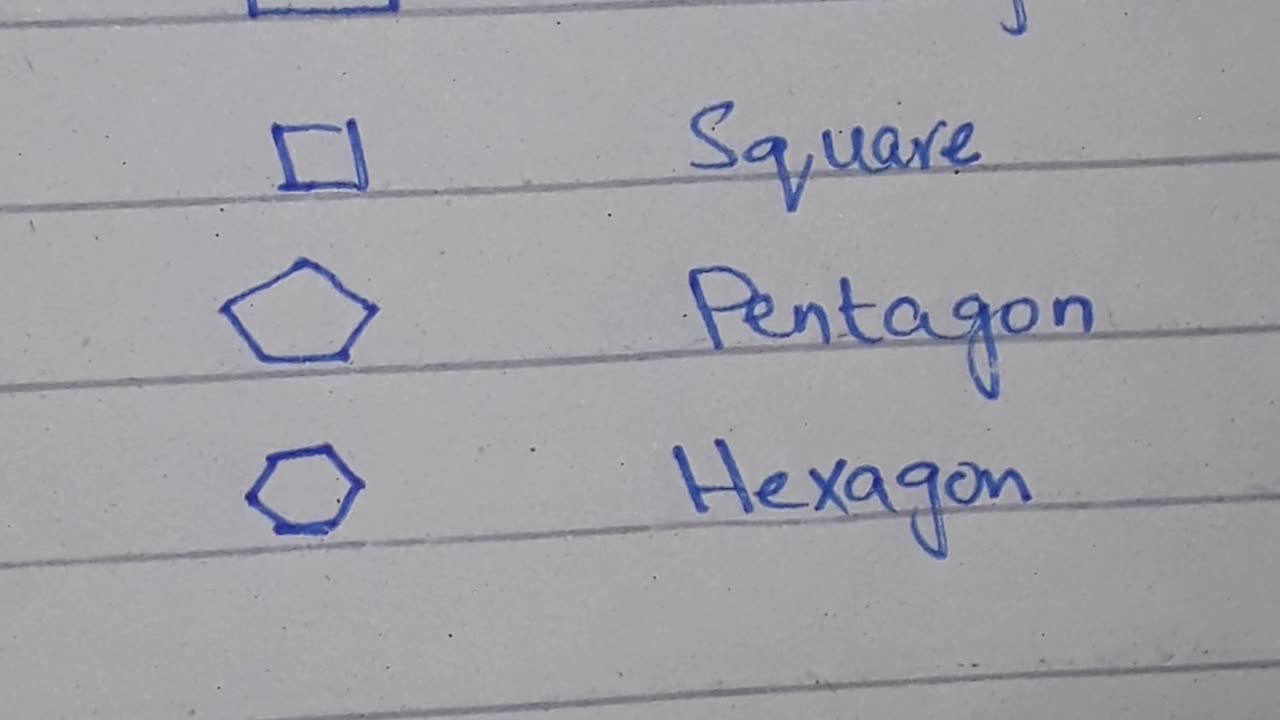 Square
Pentagon
Hexagon